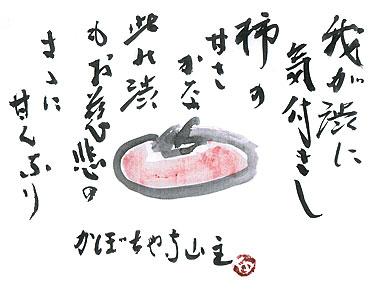 我が渋に
気付きし
柿の
甘さ
かな
此の渋
もお慈悲の
まゝに
甘くなり
かぼちゃ寺山主